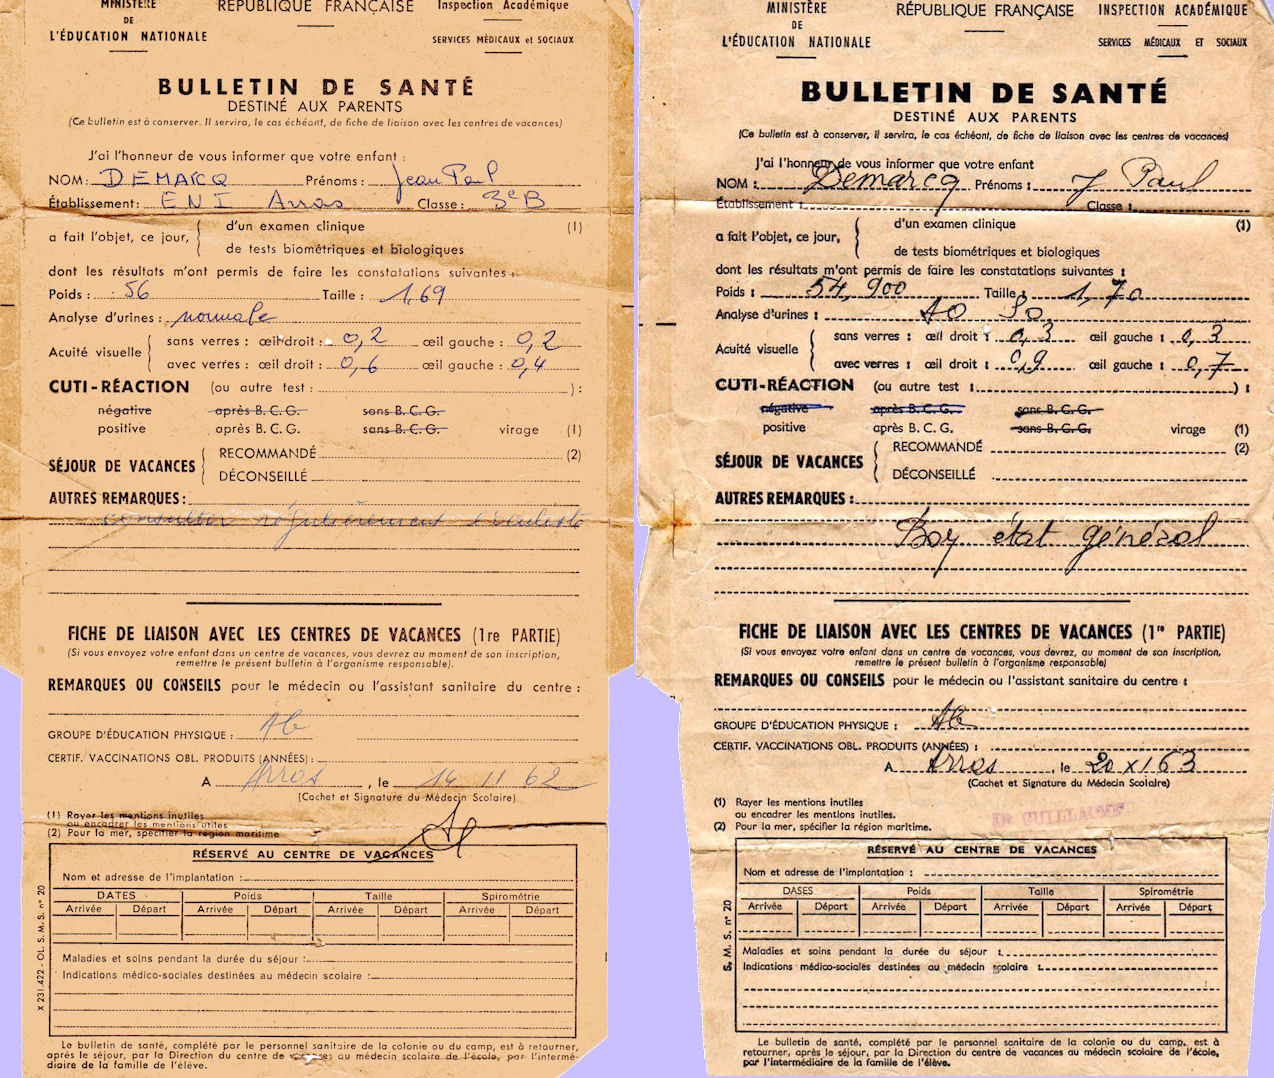 MINISTÈRE
DE
L'ÉDUCATION NATIONALE
RÉPUBLIQUE FRANÇAISE
Inspection Académique
SERVICES MÉDICAUX et SOCIAUX
BULLETIN DE SANTÉ
DESTINÉ AUX PARENTS
(Ce bulletin est à conserver. Il servira, le cas échéant, de fiche de liaison avec les centres de vacances)
J'ai l'honneur de vous informer que votre enfant :
NOM : DEMARCQ Prénoms : Jean Paul
Établissement : ENI Arras Classe : 3e B
a fait l'objet, ce jour, d'un examen clinique (1)
de tests biométriques et biologiques
dont les résultats m'ont permis de faire les constatations suivantes :
Poids : 56 Taille : 1,69
Analyse d'urines : normale
Acuité visuelle sans verres : œil droit : 0,2 œil gauche : 0,2
avec verres : œil droit : 0,6 œil gauche : 0,4
CUTI-RÉACTION (ou autre test : ) :
négative après B. C. G. sans B. C. G.
positive après B. C. G. sans B. C. G. virage (1)
SÉJOUR DE VACANCES RECOMMANDÉ (2)
DÉCONSEILLÉ
AUTRES REMARQUES :
consulter régulièrement l'oculiste
FICHE DE LIAISON AVEC LES CENTRES DE VACANCES (1re PARTIE)
(Si vous envoyez votre enfant dans un centre de vacances, vous devrez au moment de son inscription,
remettre le présent bulletin à l'organisme responsable).
REMARQUES OU CONSEILS pour le médecin ou l'assistant sanitaire du centre :
GROUPE D'ÉDUCATION PHYSIQUE :
CERTIF. VACCINATIONS OBL. PRODUITS (ANNÉES) :
A Arras , le 14 11 62
(Cachet et Signature du Médecin Scolaire)
(1) Rayer les mentions inutiles
ou encadrer les mentions utiles
(2) Pour la mer, spécifier la région maritime
RÉSERVÉ AU CENTRE DE VACANCES
Nom et adresse de l'implantation :
DATES Poids Taille Spirométrie
Arrivée Départ Arrivée Départ Arrivée Départ Arrivée Départ
Maladies et soins pendant la durée du séjour :
Indications médico-sociales destinées au médecin scolaire :
X 231.422 - OL. S. M. S. n° 20
Le bulletin de santé, complété par le personnel sanitaire de la colonie ou du camp, est à retourner,
après le séjour, par la Direction du centre de vacances au médecin scolaire de l'école, par l'intermé-
diaire de la famille de l'élève.
MINISTÈRE
DE
L'ÉDUCATION NATIONALE
RÉPUBLIQUE FRANÇAISE
INSPECTION ACADÉMIQUE
SERVICES MÉDICAUX ET SOCIAUX
BULLETIN DE SANTÉ
DESTINÉ AUX PARENTS
(Ce bulletin est à conserver, il servira, le cas échéant, de fiche de liaison avec les centres de vacances)
J'ai l'honneur de vous informer que votre enfant
NOM : Demarcq Prénoms : J Paul
Établissement : Classe :
a fait l'objet, ce jour, d'un examen clinique (1)
de tests biométriques et biologiques
dont les résultats m'ont permis de faire les constatations suivantes :
Poids : 54,900 Taille : 1,70
Analyse d'urines : A0 S0
Acuité visuelle sans verres : œil droit : 0,3 œil gauche : 0,3
avec verres : œil droit : 0,9 œil gauche : 0,7
CUTI-RÉACTION (ou autre test : ) :
négative après B. C. G. sans B. C. G.
positive après B. C. G. sans B. C. G. virage (1)
SÉJOUR DE VACANCES RECOMMANDÉ (2)
DÉCONSEILLÉ
AUTRES REMARQUES :
Bon état général
FICHE DE LIAISON AVEC LES CENTRES DE VACANCES (1re PARTIE)
(Si vous envoyez votre enfant dans un centre de vacances, vous devrez, au moment de son inscription,
remettre le présent bulletin à l'organisme responsable)
REMARQUES OU CONSEILS pour le médecin ou l'assistant sanitaire du centre :
GROUPE D'ÉDUCATION PHYSIQUE :
CERTIF. VACCINATIONS OBL. PRODUITS (ANNÉES) :
A Arras , le 20 XI 63
(Cachet et Signature du Médecin Scolaire)
(1) Rayer les mentions inutiles
ou encadrer les mentions inutiles.
(2) Pour la mer, spécifier la région maritime.
Dr GUILLAUME
RÉSERVÉ AU CENTRE DE VACANCES
Nom et adresse de l'implantation :
DASES Poids Taille Spirométrie
Arrivée Départ Arrivée Départ Arrivée Départ Arrivée Départ
Maladies et soins pendant la durée du séjour :
Indications médico-sociales destinées au médecin scolaire :
S. M. S. n° 20
Le bulletin de santé, complété par le personnel sanitaire de la colonie ou du camp, est à
retourner, après le séjour, par la Direction du centre de vacances au médecin scolaire de l'école,
par l'intermédiaire de la famille de l'élève.